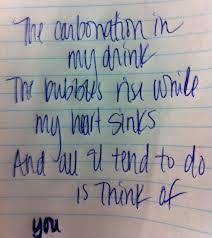 The carbonation in
my drink
The bubbles rise while
my heart sinks
And all I tend to do
is Think of
you